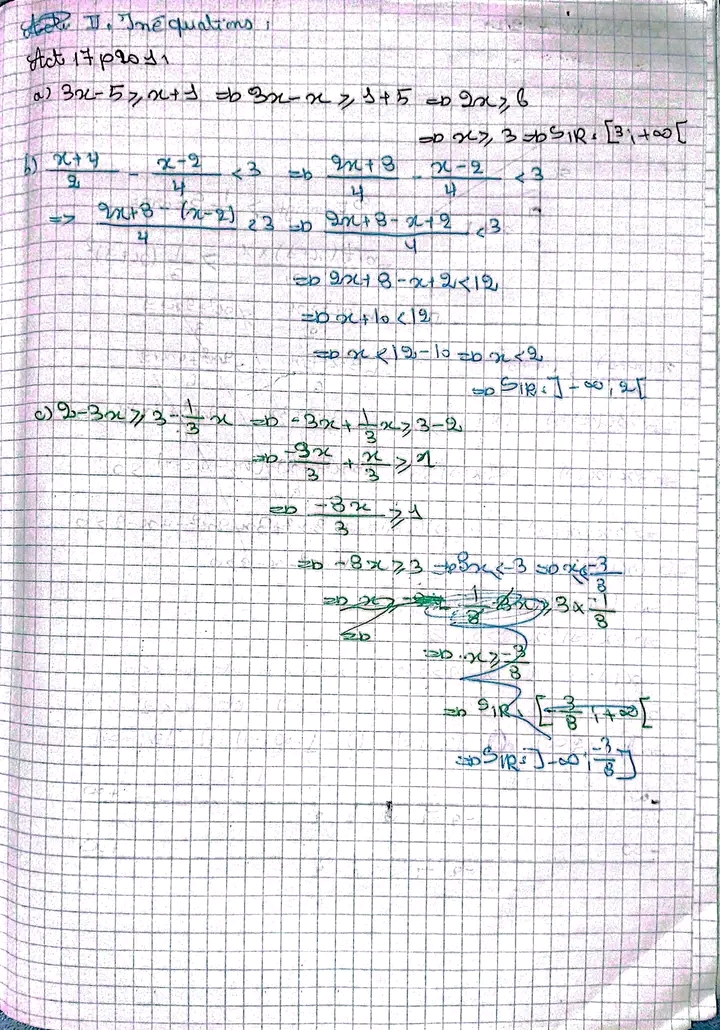 II. Inéquations :
Act 17 p201
a) 3x-5 ⩾ x+1 => 3x-x ⩾ 1+5 => 2x ⩾ 6
=> x ⩾ 3 => SIR : [3 ; +∞[
b) (x+4)/2 - (x-2)/4 < 3 => (2x+8)/4 - (x-2)/4 < 3
=> (2x+8-(x-2))/4 < 3 => (2x+8-x+2)/4 < 3
=> 2x+8-x+2 < 12
=> x+10 < 12
=> x < 12-10 => x < 2
=> SIR : ]-∞ ; 2[
c) 2-3x ⩾ 3-1/3 x => -3x+1/3 x ⩾ 3-2
=> -9x/3 + x/3 ⩾ 1
=> -8x/3 ⩾ 1
=> -8x ⩾ 3 => 8x ⩽ -3 => x ⩽ -3/8
=> x ⩾ 1/8 8x ⩾ 3 × -1/8
=>
=> x ⩾ -3/8
=> SIR : [-3/8 ; +∞[
=> SIR : ]-∞ ; -3/8]